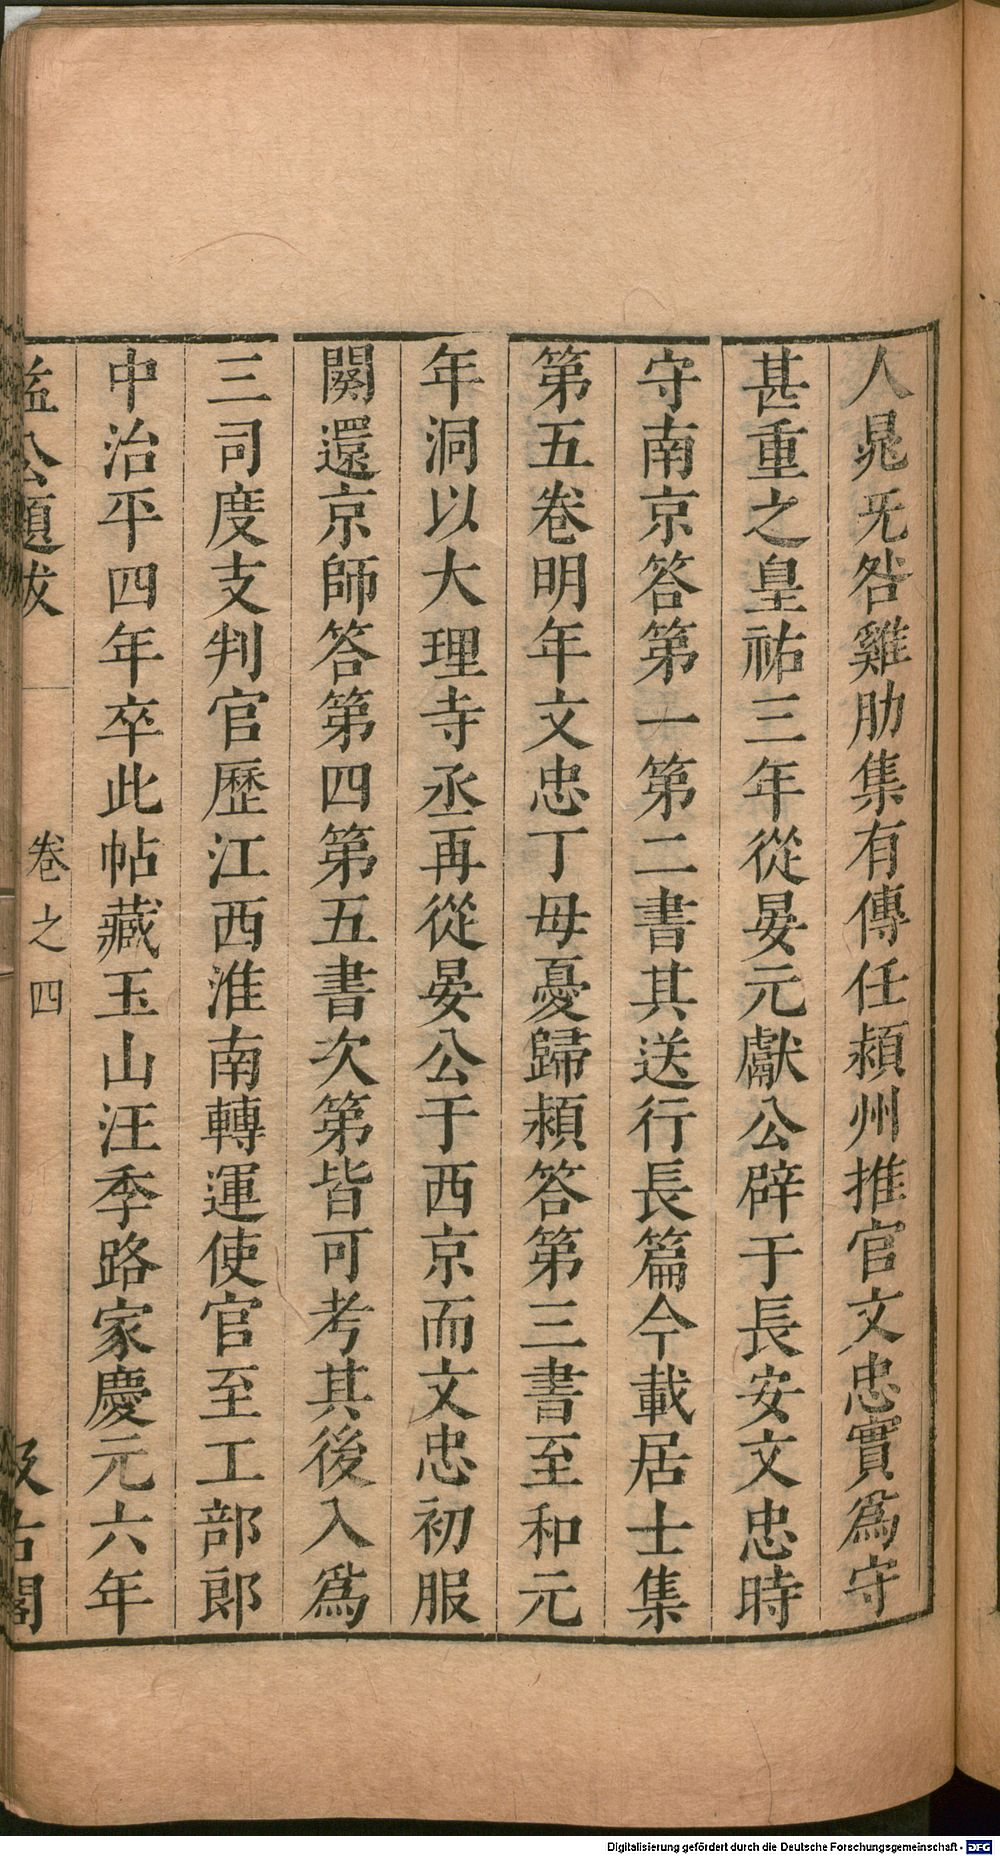 人晁旡咎雞肋集有傳任潁州推官文忠實爲守
甚重之皇祐三年從晏元獻公辟于長安文忠時
守南京答第一第二書其送行長篇今載居士集
第五卷明年文忠丁母憂歸潁答第三書至和元
年洞以大理寺丞再從晏公于西京而文忠初服
闋還京師答第四第五書次第皆可考其後入爲
三司度支判官歷江西淮南轉運使官至工部郎
中治平四年卒此帖藏玉山汪季路家慶元六年
益公題跋
卷之四
汲古閣
Digitalisierung gefördert durch die Deutsche Forschungsgemeinschaft - DFG